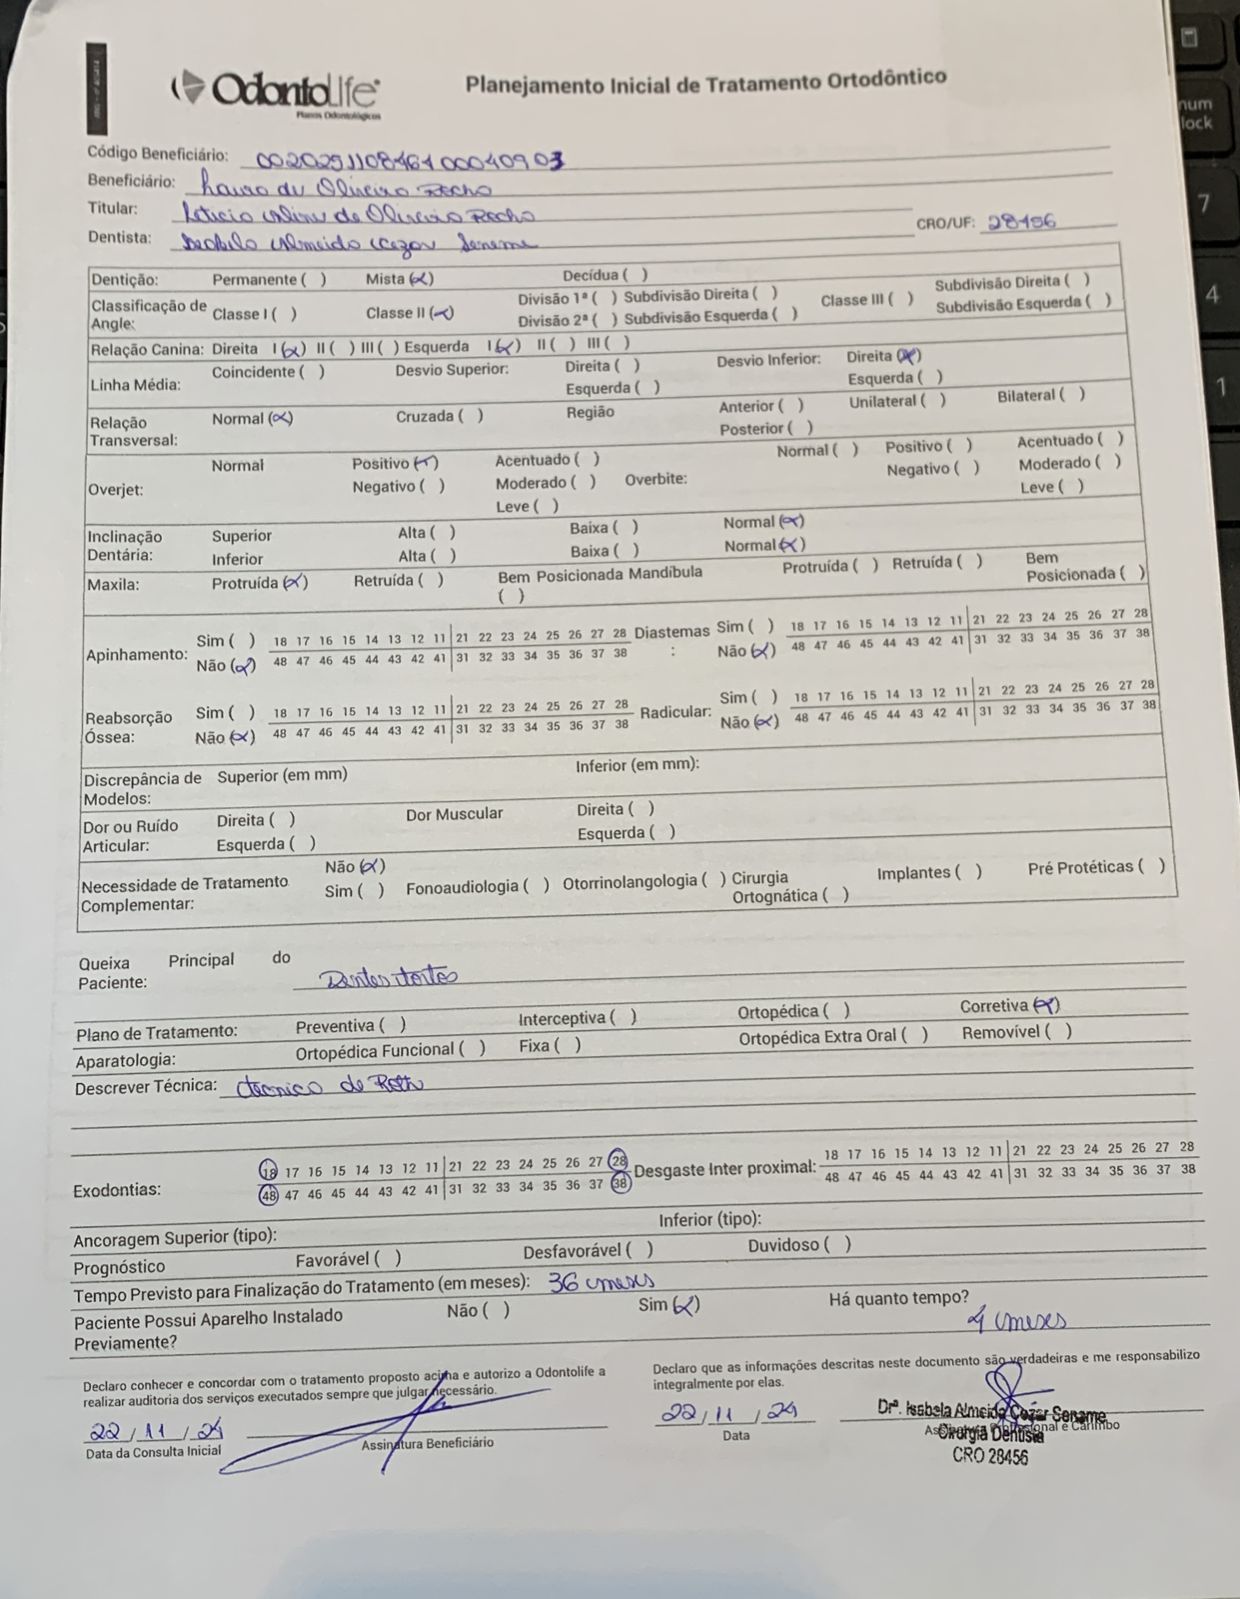 OdontoLife
Planos Odontológicos
Planejamento Inicial de Tratamento Ortodôntico
Código Beneficiário:
Beneficiário: de Oliveira Rocho
Titular: de Oliveira Rocho
Dentista: CRO/UF: 28456
Dentição: Permanente ( ) Mista (x) Decídua ( )
Classificação de Angle: Classe I ( ) Classe II (x) Divisão 1ª ( ) Subdivisão Direita ( ) Classe III ( ) Subdivisão Direita ( )
Divisão 2ª ( ) Subdivisão Esquerda ( ) Subdivisão Esquerda ( )
Relação Canina: Direita I (x) II ( ) III ( ) Esquerda I (x) II ( ) III ( )
Linha Média: Coincidente ( ) Desvio Superior: Direita ( ) Desvio Inferior: Direita (x)
Esquerda ( ) Esquerda ( )
Relação Transversal: Normal (x) Cruzada ( ) Região Anterior ( ) Unilateral ( ) Bilateral ( )
Posterior ( )
Overjet: Normal Positivo (x) Acentuado ( ) Overbite: Normal ( ) Positivo ( ) Acentuado ( )
Negativo ( ) Moderado ( ) Negativo ( ) Moderado ( )
Leve ( ) Leve ( )
Inclinação Dentária: Superior Alta ( ) Baixa ( ) Normal (x)
Inferior Alta ( ) Baixa ( ) Normal (x)
Maxila: Protruída (x) Retruída ( ) Bem Posicionada ( ) Mandíbula Protruída ( ) Retruída ( ) Bem Posicionada ( )
Apinhamento: Sim ( ) 18 17 16 15 14 13 12 11 21 22 23 24 25 26 27 28 Diastemas: Sim ( ) 18 17 16 15 14 13 12 11 21 22 23 24 25 26 27 28
Não (x) 48 47 46 45 44 43 42 41 31 32 33 34 35 36 37 38 Não (x) 48 47 46 45 44 43 42 41 31 32 33 34 35 36 37 38
Reabsorção Óssea: Sim ( ) 18 17 16 15 14 13 12 11 21 22 23 24 25 26 27 28 Radicular: Sim ( ) 18 17 16 15 14 13 12 11 21 22 23 24 25 26 27 28
Não (x) 48 47 46 45 44 43 42 41 31 32 33 34 35 36 37 38 Não (x) 48 47 46 45 44 43 42 41 31 32 33 34 35 36 37 38
Discrepância de Modelos: Superior (em mm) Inferior (em mm):
Dor ou Ruído Articular: Direita ( ) Dor Muscular Direita ( )
Esquerda ( ) Esquerda ( )
Necessidade de Tratamento Complementar: Não (x)
Sim ( ) Fonoaudiologia ( ) Otorrinolangologia ( ) Cirurgia Ortognática ( ) Implantes ( ) Pré Protéticas ( )
Queixa Principal do Paciente: Dentes tortos
Plano de Tratamento: Preventiva ( ) Interceptiva ( ) Ortopédica ( ) Corretiva (x)
Aparatologia: Ortopédica Funcional ( ) Fixa ( ) Ortopédica Extra Oral ( ) Removível ( )
Descrever Técnica: técnica de Roth
Exodontias: 18 17 16 15 14 13 12 11 21 22 23 24 25 26 27 28 Desgaste Inter proximal: 18 17 16 15 14 13 12 11 21 22 23 24 25 26 27 28
48 47 46 45 44 43 42 41 31 32 33 34 35 36 37 38 48 47 46 45 44 43 42 41 31 32 33 34 35 36 37 38
Ancoragem Superior (tipo): Inferior (tipo):
Prognóstico Favorável ( ) Desfavorável ( ) Duvidoso ( )
Tempo Previsto para Finalização do Tratamento (em meses): 36 meses
Paciente Possui Aparelho Instalado Previamente? Não ( ) Sim (x) Há quanto tempo? 4 meses
Declaro conhecer e concordar com o tratamento proposto acima e autorizo a Odontolife a
realizar auditoria dos serviços executados sempre que julgar necessário.
Declaro que as informações descritas neste documento são verdadeiras e me responsabilizo
integralmente por elas.
22/11/24 22/11/24
Data da Consulta Inicial Assinatura Beneficiário Data Assinatura Profissional e Carimbo
Drª. Isabela Almeida Cezar Sename
Cirurgiã Dentista
CRO 28456
num
lock
7
4
1